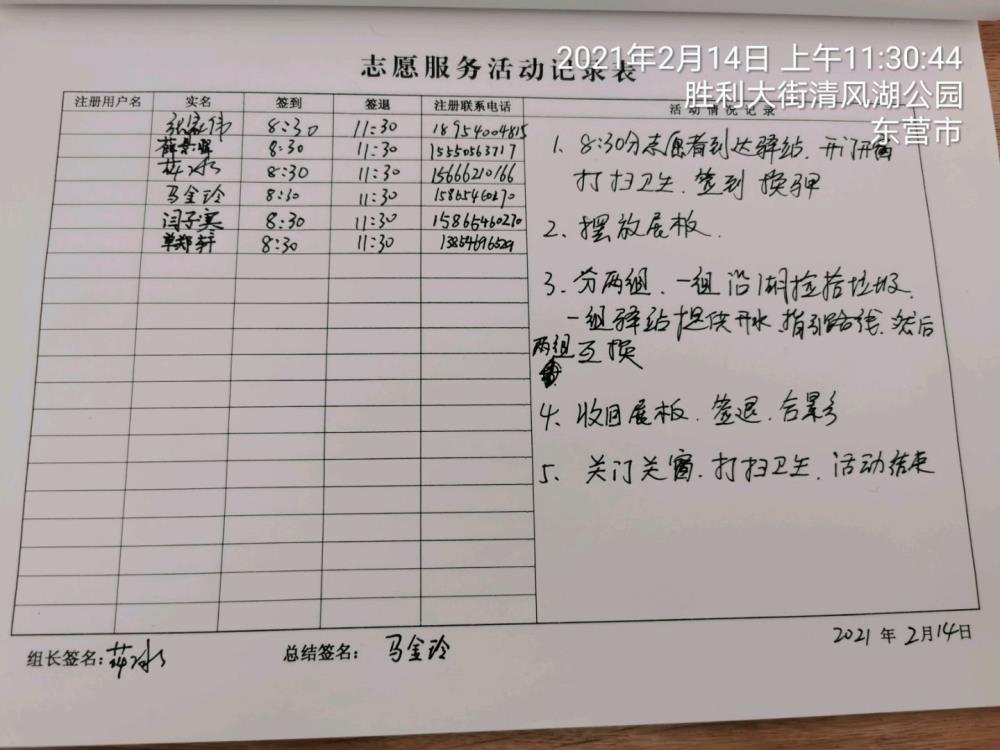 2021年2月14日 上午11:30:44
胜利大街清风湖公园
东营市
志愿服务活动记录表
注册用户名 实名 签到 签退 注册联系电话 活动情况记录
张家伟 8:30 11:30 18954004815
8:30 11:30 15550563717
8:30 11:30 15666210166
马金玲 8:30 11:30 15865460270
闫子寞 8:30 11:30 15865460270
单郑轩 8:30 11:30 13854696529
1、8:30分志愿者到达驿站,开门开窗
打扫卫生,签到 换钾
2、摆放展板.
3、分两组,一组沿湖捡拾垃圾,
一组驿站提供开水,指引路线,然后
两组互换
4、收回展板,签退,合影
5、关门关窗,打扫卫生,活动结束
组长签名:
总结签名: 马金玲
2021 年 2月14日